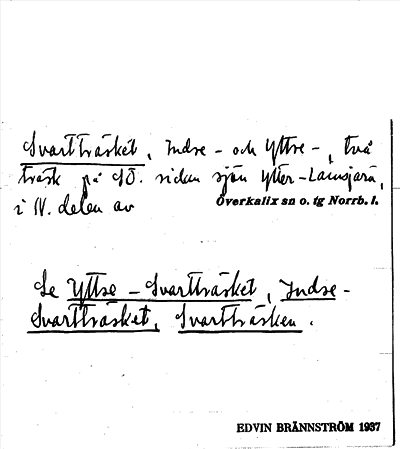 Svartträsket, Indre- och Yttre-, två
träsk på SÖ. sidan sjön Ytter-Lansjärv,
i N. delen av Överkalix sn o. tg Norrb. l.
Se Yttre-Svartträsket, Indre-
Svartträsket, Svartträsken.
EDVIN BRÄNNSTRÖM 1937